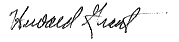 Howard Grant